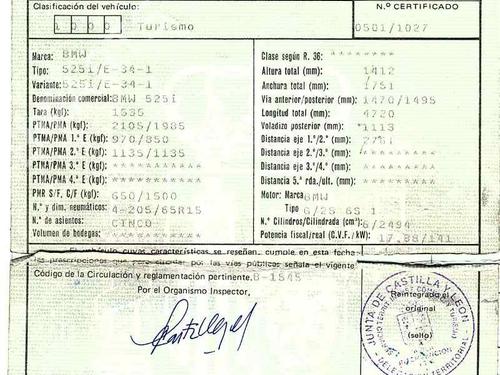 Clasificación del vehículo:
1000 Turismo
N.º CERTIFICADO
0501/1027
Marca: BMW
Tipo: 525i/E-34-1
Variante: 525i/E-34-1
Denominación comercial: BMW 525i
Tara (kgf): 1535
PTMA/PMA (kgf): 2105/1985
PTMA/PMA 1.º E (kgf): 970/850
PTMA/PMA 2.º E (kgf): 1135/1135
PTMA/PMA 3.º E (kgf): * * * * * * * * * *
PTMA/PMA 4.º E (kgf): * * * * * * * * * *
PMR S/F, C/F (kgf): 650/1500
N.º y dim. neumáticos: 4-205/65R15
N.º de asientos: CINCO
Volumen de bodegas: * * * * * * * * * *
Clase según R. 36: * * * * * * * *
Altura total (mm): 1412
Anchura total (mm): 1751
Vía anterior/posterior (mm): 1470/1495
Longitud total (mm): 4720
Voladizo posterior (mm): 1113
Distancia eje 1.º/2.º (mm): 2761
Distancia eje 2.º/3.º (mm): * * * * * * * *
Distancia eje 3.º/4.º (mm): * * * * * * * *
Distancia 5.ª rda./ult. (mm): * * * * * * * *
Motor: Marca: BMW
Tipo 6/25 6S 1
N.º Cilindros/Cilindrada (cm³): 6/2494
Potencia fiscal/real (C.V.F./kW): 17,88/141
El vehículo cuyas características se reseñan, cumple en esta fecha
las prescripciones que por las vías públicas señala el vigente
Código de la Circulación y reglamentación pertinente. B-1545
Por el Organismo Inspector,
JUNTA DE CASTILLA Y LEON
Reintegro el
original
(sello)
DELEGACION TERRITORIAL